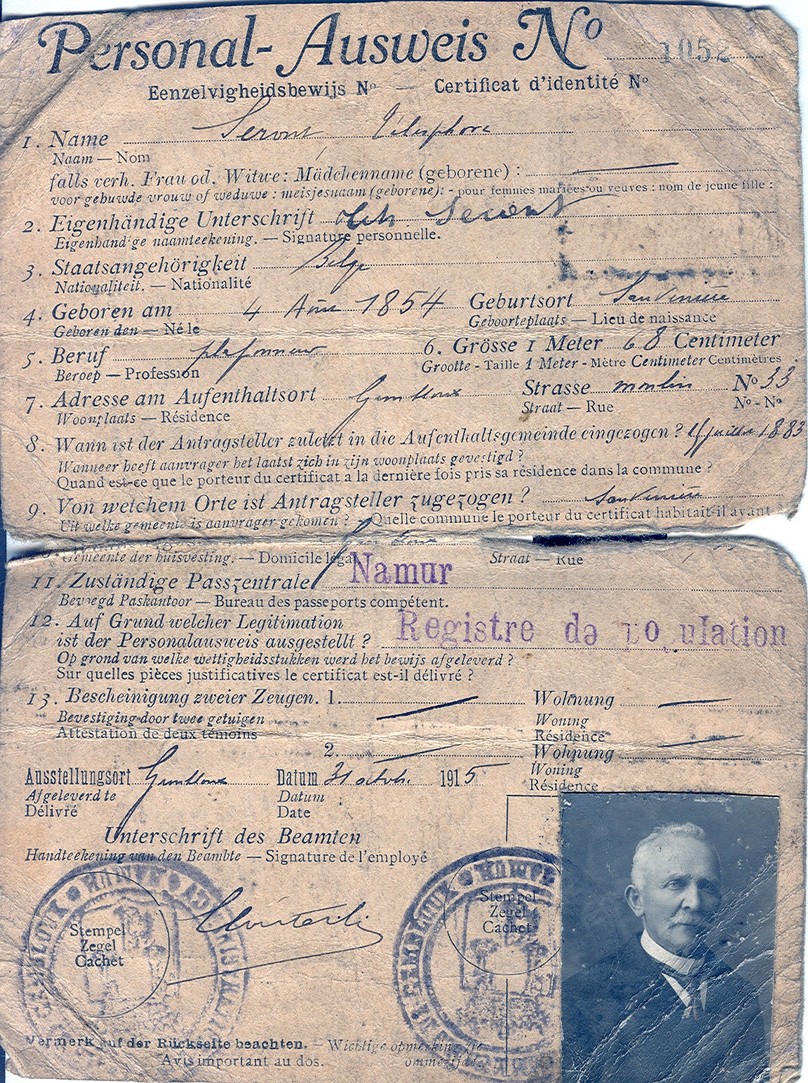 Personal-Ausweis No 1052
Eenzelvigheidsbewijs No — Certificat d'identité No
1. Name Servent Télesphore
Naam — Nom
falls verh. Frau od. Witwe: Mädchenname (geborene) : —
voor gebuwde vrouw of weduwe : meisjesnaam (geborene): - pour femmes mariées ou veuves : nom de jeune fille :
2. Eigenhändige Unterschrift
Eigenhandige naamteekening. — Signature personnelle.
3. Staatsangehörigkeit Belge
Nationaliteit. — Nationalité
4. Geboren am 4 1854 Geburtsort Sauvenière
Geboren den — Né le Geboorteplaats — Lieu de naissance
5. Beruf plafonneur 6. Grösse 1 Meter 68 Centimeter
Beroep — Profession Grootte - Taille 1 Meter - Mètre Centimeter Centimètres
7. Adresse am Aufenthaltsort Gembloux Strasse moulin No 33
Woonplaats — Résidence Straat — Rue No - No
8. Wann ist der Antragsteller zuletzt in die Aufenthaltsgemeinde eingezogen ? juillet 1883
Wanneer heeft aanvrager het laatst zich in zijn woonplaats gevestigd ?
Quand est-ce que le porteur du certificat a la dernière fois pris sa résidence dans la commune ?
9. Von welchem Orte ist Antragsteller zugezogen ? Sauvenière
Uit welke gemeente is aanvrager gekomen ? Quelle commune le porteur du certificat habitait-il avant
Gemeente der huisvesting. — Domicile légal Straat — Rue
11. Zuständige Passzentrale Namur
Bevoegd Paskantoor — Bureau des passeports compétent.
12. Auf Grund welcher Legitimation
ist der Personalausweis ausgestellt ? Registre de population
Op grond van welke wettigheidsstukken werd het bewijs afgeleverd ?
Sur quelles pièces justificatives le certificat est-il délivré ?
13. Bescheinigung zweier Zeugen. 1. — Wohnung —
Bevestiging door twee getuigen Woning
Attestation de deux témoins Résidence —
2. — Wohnung
Woning
Résidence
Ausstellungsort Gembloux Datum 31 octob. 1915
Afgeleverd te Datum
Délivré Date
Unterschrift des Beamten
Handteekening van den Beambte — Signature de l'employé
Stempel
Zegel
Cachet
Stempel
Zegel
Cachet
Vermerk auf der Rückseite beachten. — Wichtige opmerking zie ommezijde
Avis important au dos.